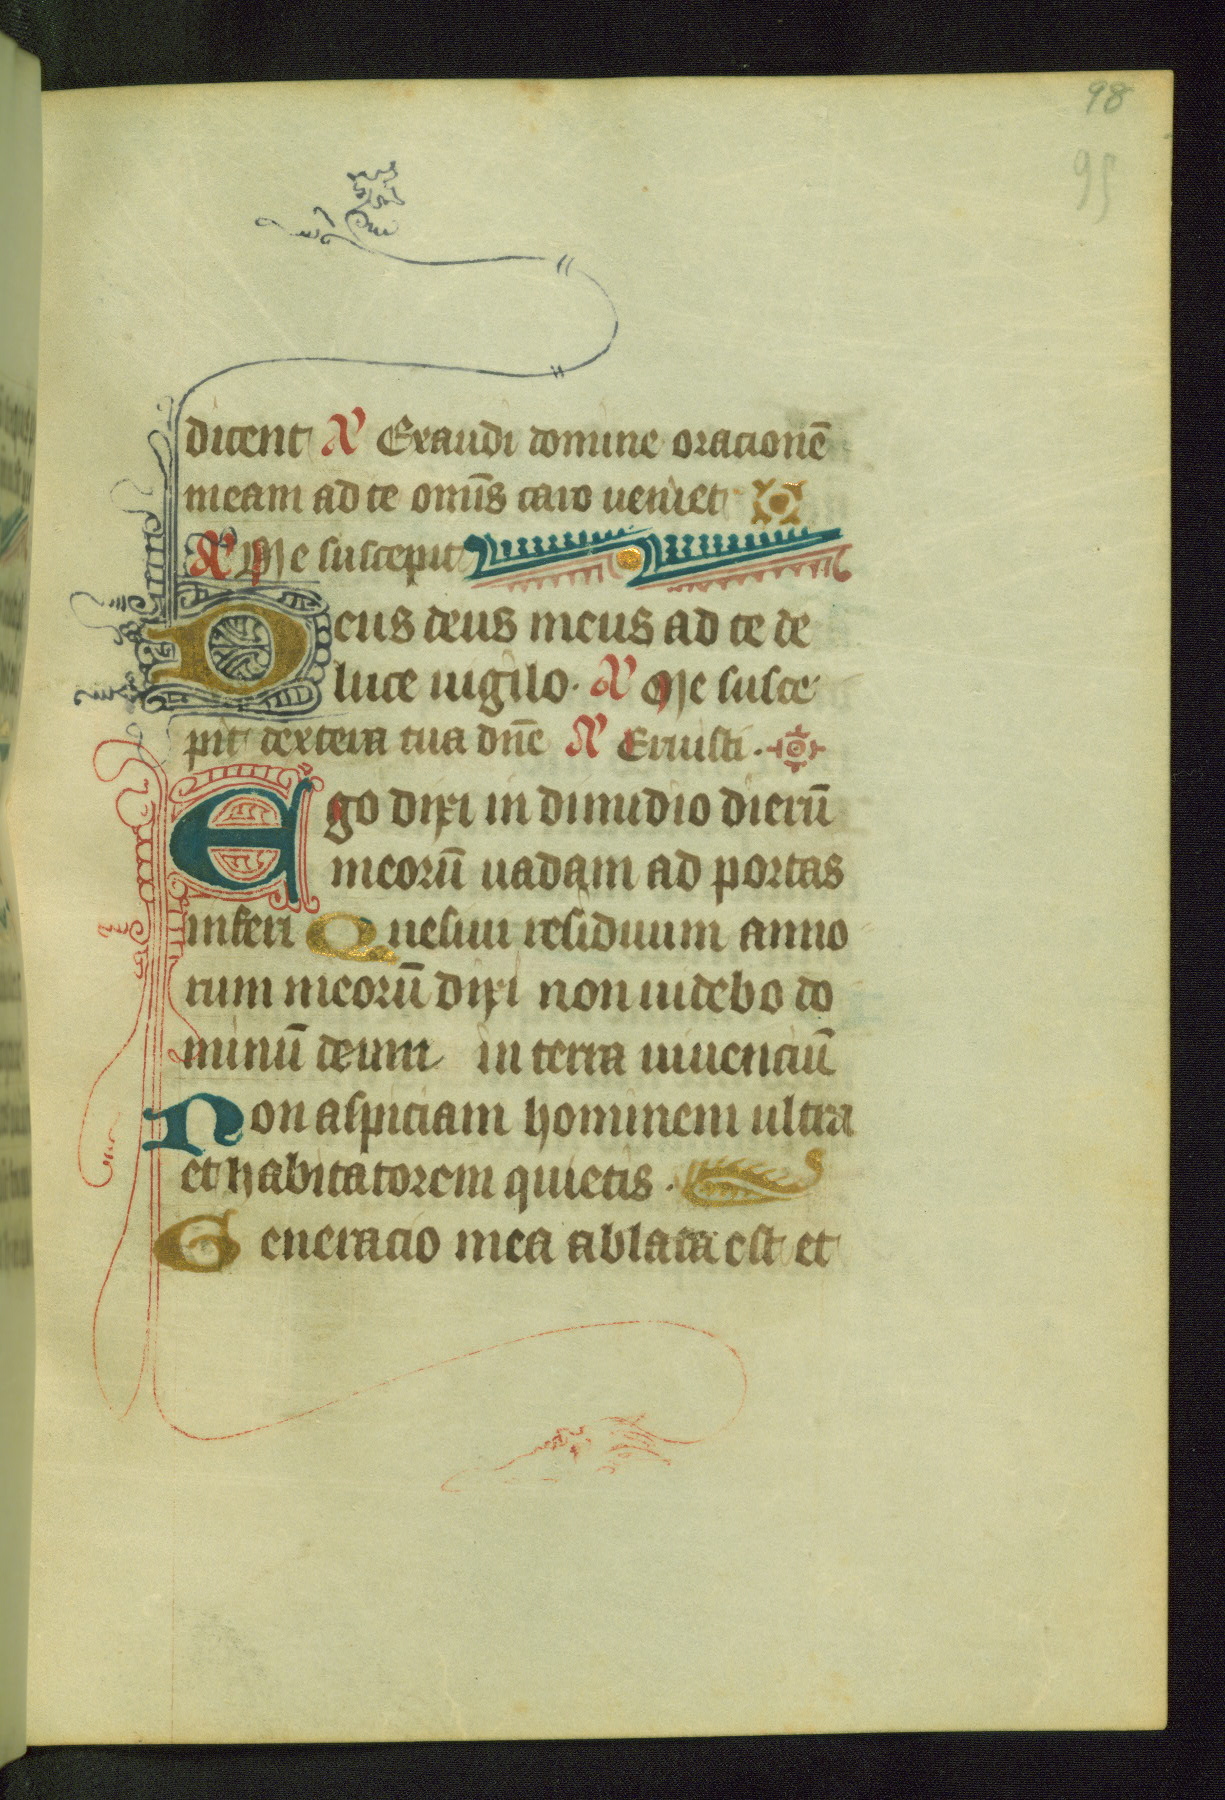 98
95
dicent A Exaudi domine oracionē
meam ad te omīs caro ueniet
A Me suscepit
Deus deus meus ad te de
luce uigilo. A Me susce
pit dextera tua dn̄e A Eruisti.
Ego dixi in dimidio dierū
meorū uadam ad portas
inferi Quesiui residuum anno
rum meorū dixi non uidebo do
minū deum in terra uiuenciū
Non aspiciam hominem ultra
et habitatorem quietis.
Generacio mea ablata est et